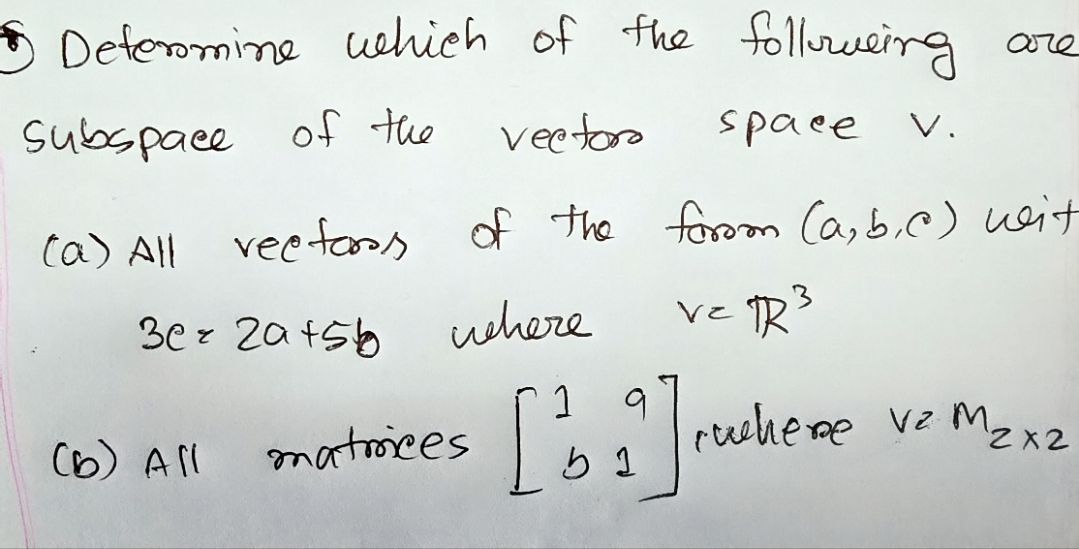 5) Determine which of the following are
subspace of the vector space V.
(a) All vectors of the form (a,b,c) wit
3c = 2a+5b where V= ℝ³
(b) All matrices [1 a
b 1], where V= M₂ₓ₂